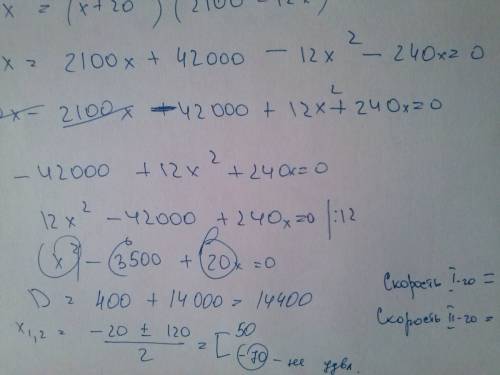 x = (x+20)(2100-12x)
x = 2100x + 42000 - 12x² - 240x = 0
2100x + 42000 + 12x² + 240x = 0
- 42000 + 12x² + 240x = 0
12x² - 42000 + 240x = 0 |:12
x² - 3500 + 20x = 0
D = 400 + 14000 = 14400
x₁,₂ = (-20 ± 120)/2 = [50 -70 - не удвл.
Скорость I-го =
Скорость II-го =